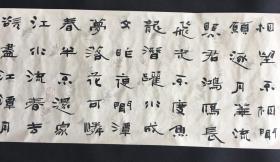 相望不相聞
願逐月華流
照君鴻雁長
飛光不度魚
龍潛躍水成
文昨夜閒潭
夢落花可憐
春半不還家
江水流春去
盡江潭月